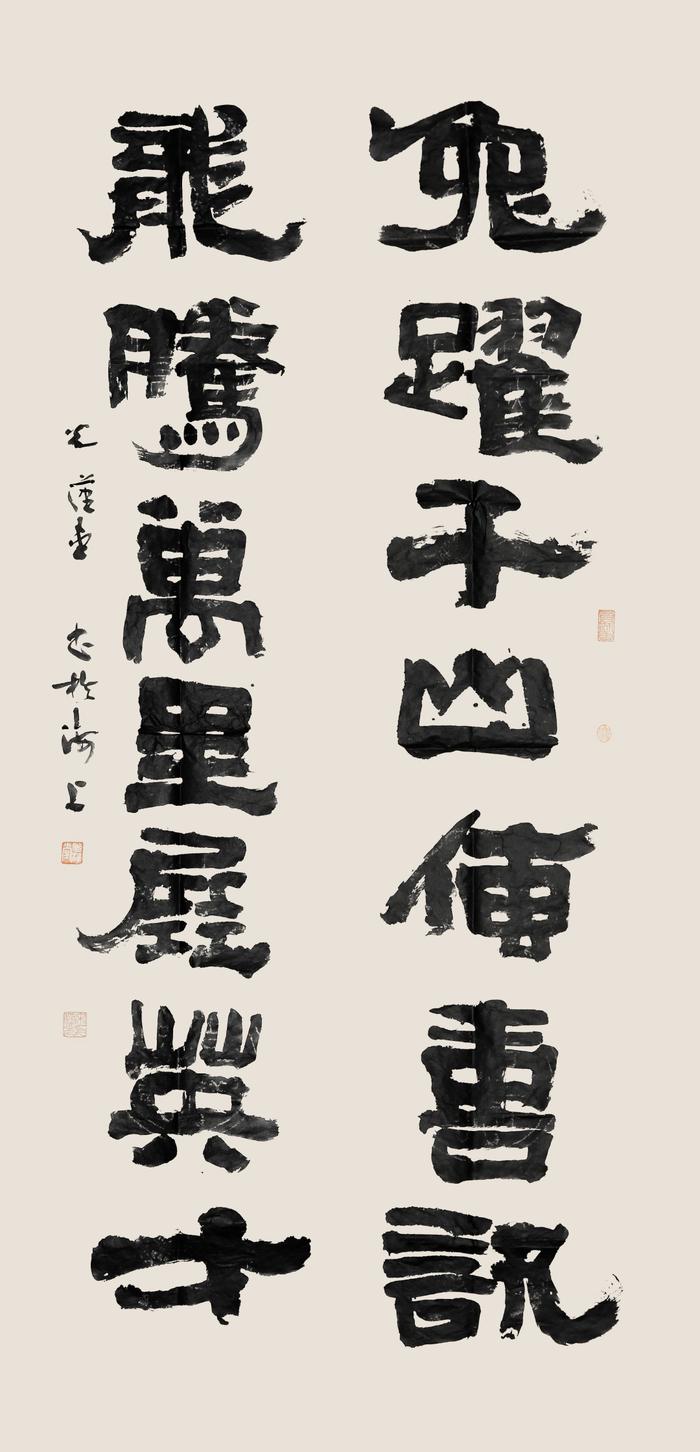 兔躍千山傳喜訊
龍騰萬里展英才
於海上